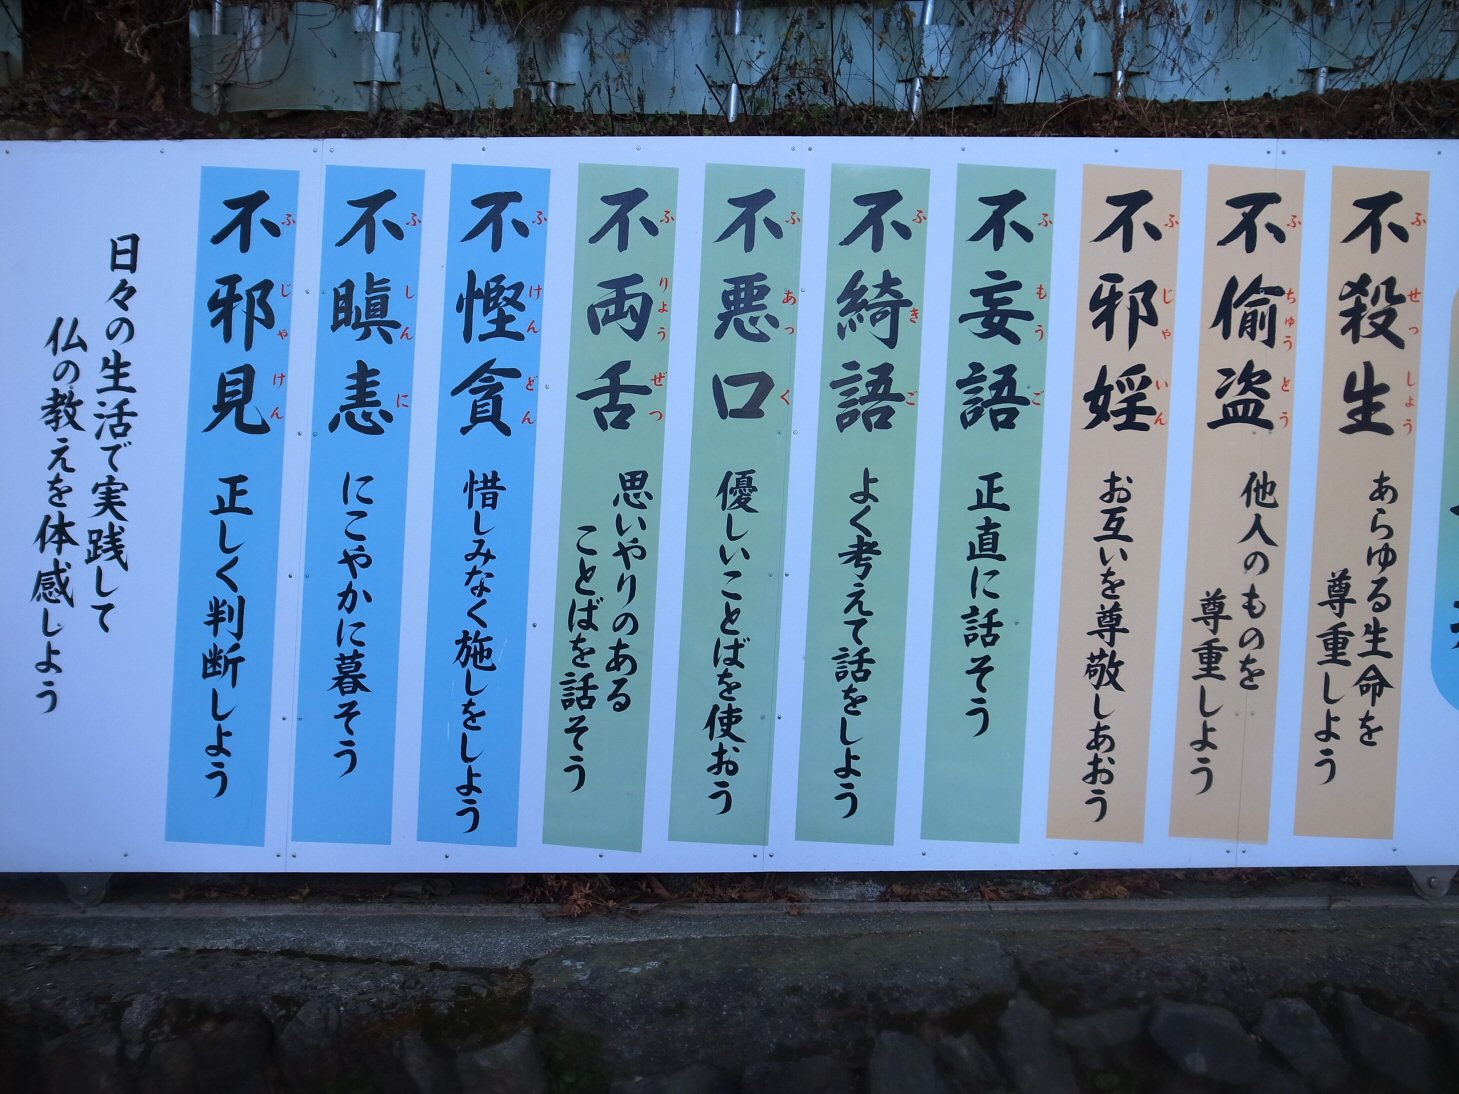 不殺生
ふせっしょう
あらゆる生命を
尊重しよう
不偸盗
ふちゅうとう
他人のものを
尊重しよう
不邪婬
ふじゃいん
お互いを尊敬しあおう
不妄語
ふもうご
正直に話そう
不綺語
ふきご
よく考えて話をしよう
不悪口
ふあっく
優しいことばを使おう
不両舌
ふりょうぜつ
思いやりのある
ことばを話そう
不慳貪
ふけんどん
惜しみなく施しをしよう
不瞋恚
ふしんに
にこやかに暮そう
不邪見
ふじゃけん
正しく判断しよう
日々の生活で実践して
仏の教えを体感しよう